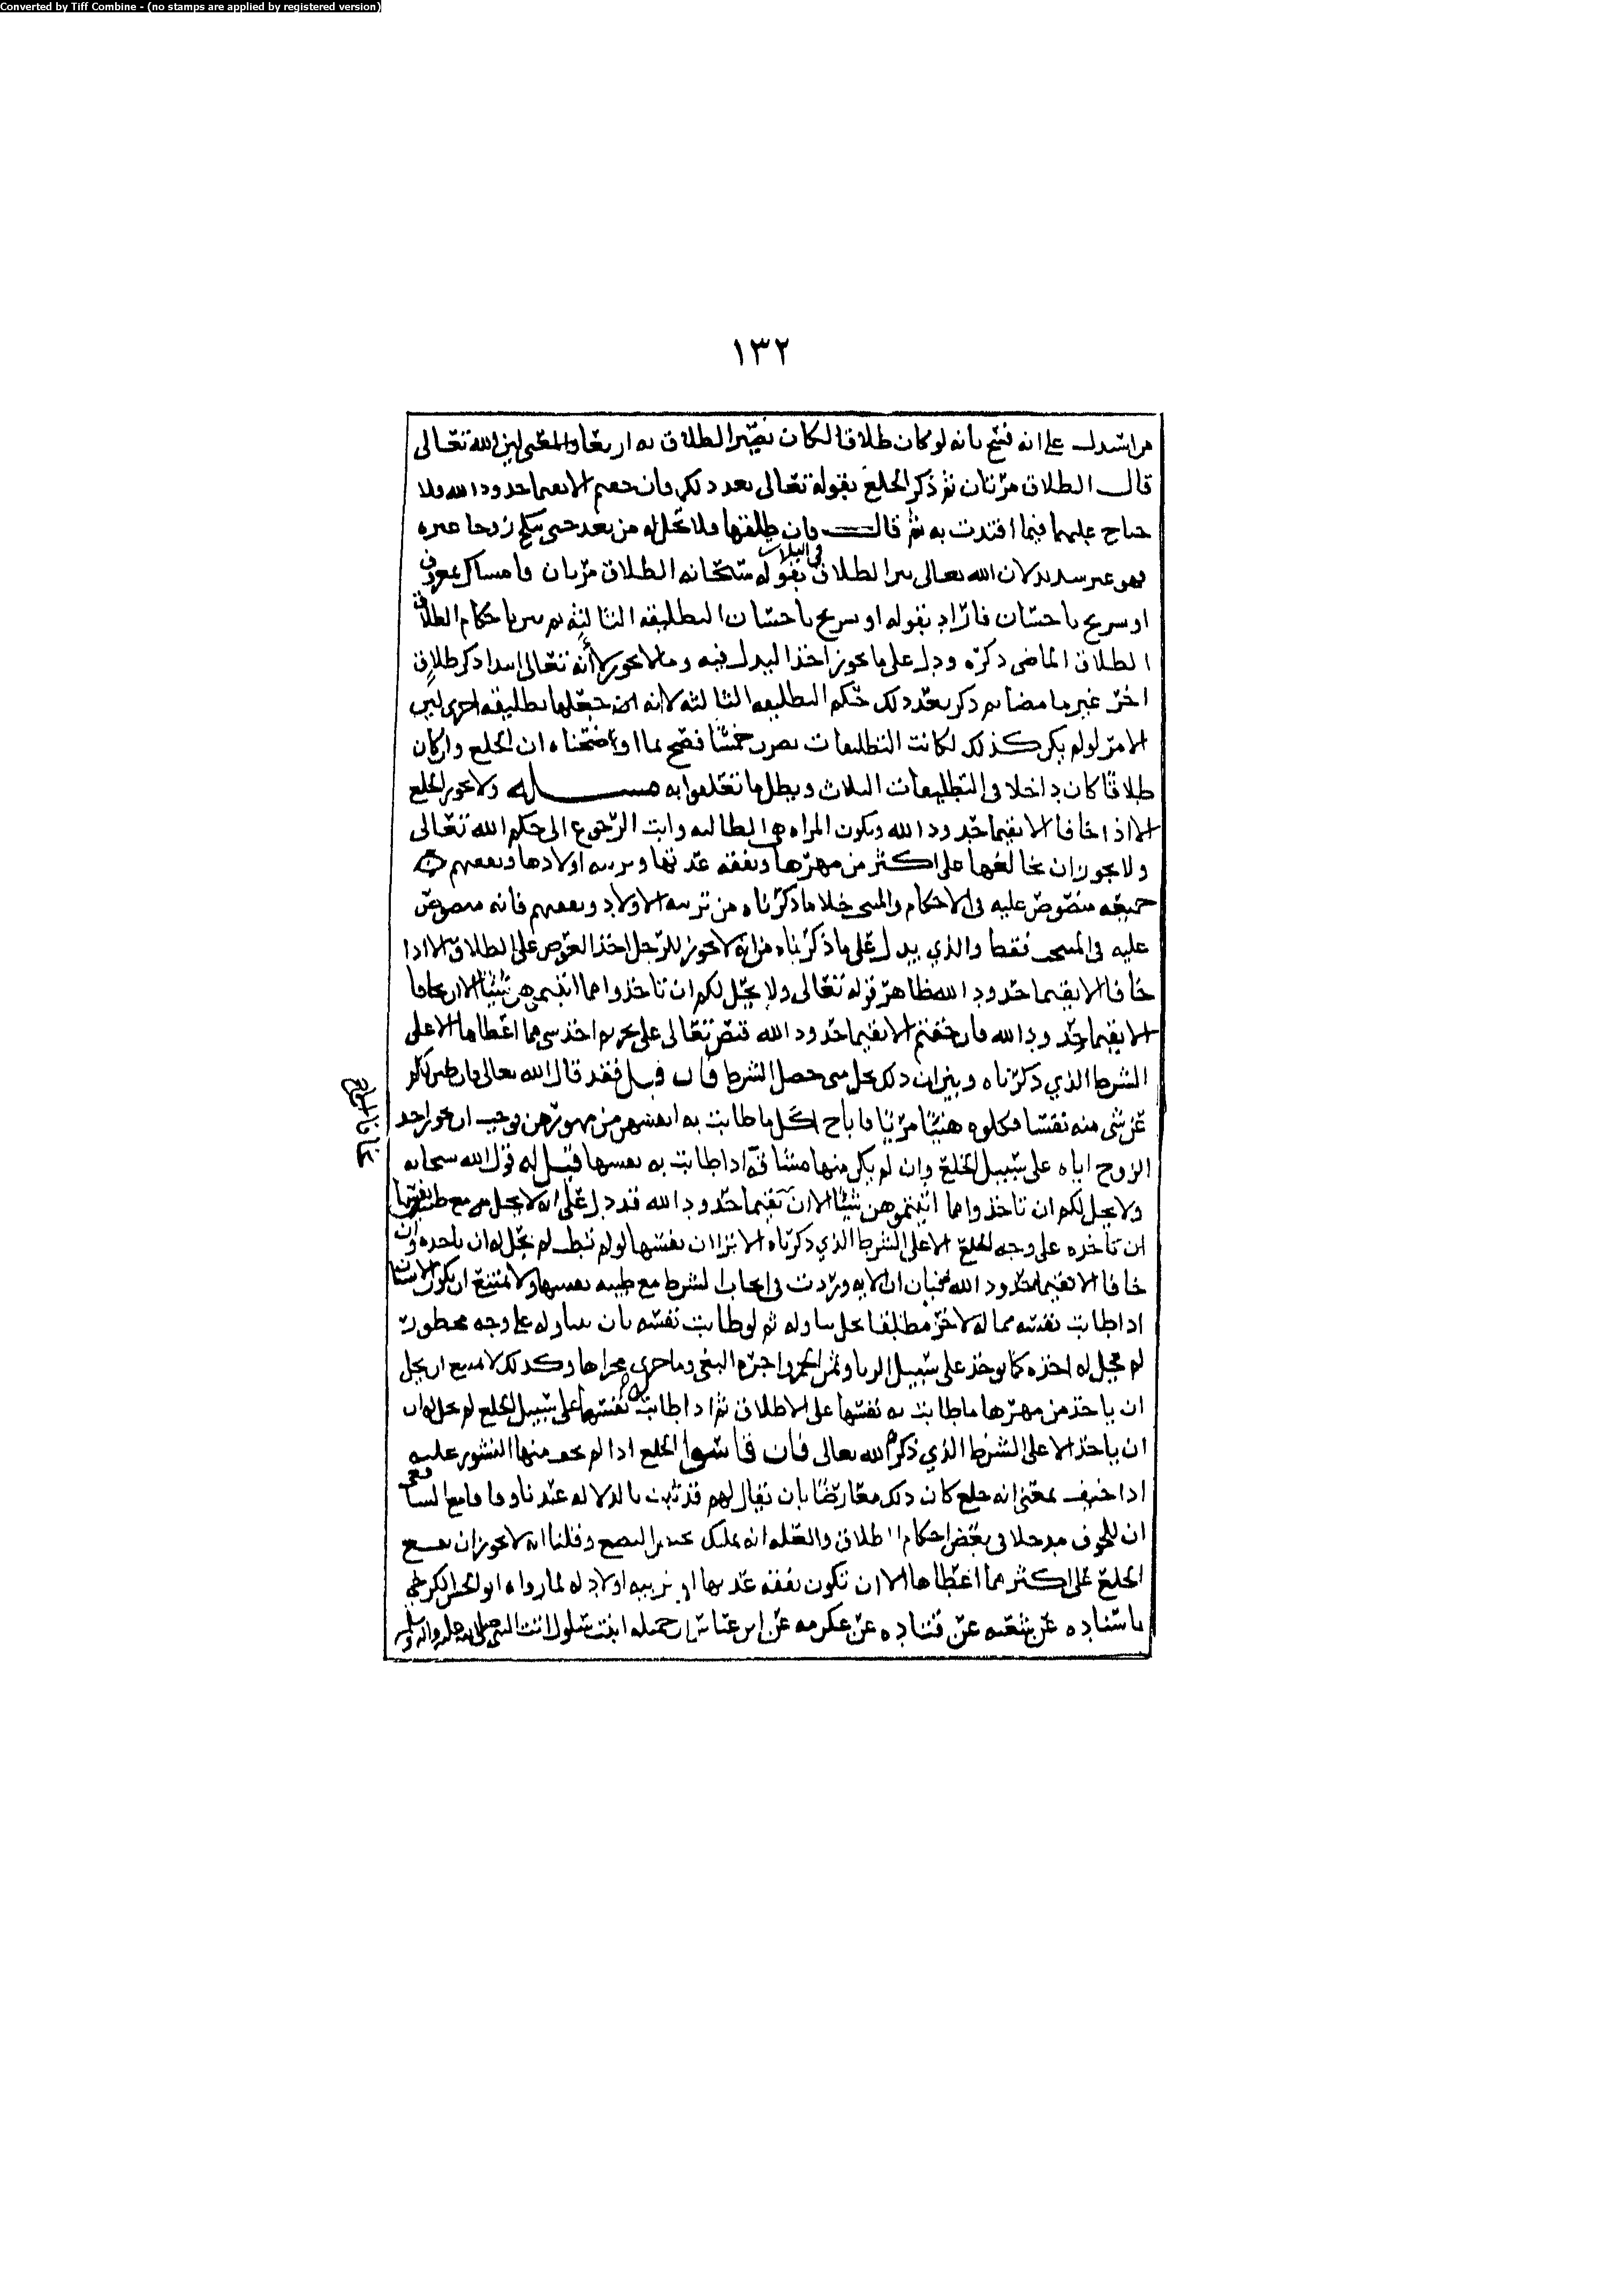 Converted by Tiff Combine - (no stamps are applied by registered version)
١٣٢
من استدل على انه فسخ بانه لو كان طلاقا لكان يصير الطلاق به اربعا والمعنى لان الله تعالى
قال الطلاق مرتان ثم ذكر الخلع بقوله تعالى بعد ذلك فان خفتم الا يقيما حدود الله فلا
جناح عليهما فيما افتدت به ثم قال فان طلقها فلا تحل له من بعد حتى تنكح زوجا غيره
فهو غير سديد لان الله تعالى بين الطلاق الثلاث بقوله سبحانه الطلاق مرتان فامساك بمعروف
او تسريح باحسان فاراد بقوله او تسريح باحسان التطليقة الثالثة ثم بين احكام الطلاق
الطلاق الماضي ذكره ودل على ما يجوز اخذ البدل فيه وما لا يجوز لا أنه تعالى ابتدا ذكر طلاق
اخر غير ما مضا ثم ذكر بعد ذلك حكم التطليقة الثالثة لا انه جعلها تطليقة اخرى يبين
الامر لو لم يكن كذلك لكانت التطليقات تصير خمسا فصح بما اوضحناه ان الخلع وان كان
طلاقا كان داخلا في التطليقات الثلاث وبطل ما تعلقوا به مسئلة ولا يجوز الخلع
الا اذا خافا الا يقيما حدود الله وتكون المراة هي الطالبة وابت الرجوع الى حكم الله تعالى
ولا يجوز ان يخالعها على اكثر من مهرها ونفقة عدتها وتربية اولادها ونفقتهم
جميعه منصوص عليه في الاحكام والمنتخب خلا ما ذكرناه من تربية الاولاد ونفقتهم فانه منصوص
عليه في المنتخب فقط والذي يدل على ما ذكرناه من انه لا يجوز للرجل اخذ العوض على الطلاق الا اذا
خافا الا يقيما حدود الله ظاهر قوله تعالى ولا يحل لكم ان تاخذوا مما اتيتموهن شيئا الا ان يخافا
الا يقيما حدود الله فان خفتم الا يقيما حدود الله فنص تعالى على تحريم اخذ شي مما اعطاها الا على
الشرط الذي ذكرناه وبين ان ذلك يحل متى حصل الشرط فان قيل فقد قال الله تعالى فان طبن لكم
عن شى منه نفسا فكلوه هنيئا مريئا فاباح اكل ما طابت به انفسهن من مهورهن فوجب ان يجوز اخذ
الزوج اياه على سبيل الخلع وان لم يكن منها اذا طابت به نفسها قيل له قول الله سبحانه
ولا يحل لكم ان تاخذوا مما اتيتموهن شيئا الا ان يقيما حدود الله قد دل على انه لا يحل مع طيبة نفسها
ان تاخذه على وجه الخلع الا على الشرط الذي ذكرناه الا ترا ان نفسها لو لم تطب لم يحل له ان ياخذه وان
خافا الا يقيما حدود الله فبان ان الاية وردت في ايجاب الشرط مع طيبة نفسها ولا يمتنع ان يكون الانسان
اذا طابت نفسه بماله لاخر مطلقا يحل تناوله ثم لو طابت نفسه بان يتناوله على وجه محظور
لم يحل له اخذه كما يوخذ على سبيل الربا وثمن الخمر واجرة البغي وما جرى مجراها وكذلك لا يمتنع ان يحل
ان ياخذ من مهرها ما طابت به نفسها على الاطلاق ثم اذا طابت نفسها على سبيل الخلع لم يحل له ان
ان ياخذ الا على الشرط الذي ذكره الله تعالى فان قاسوا الخلع اذا لم يخف منها النشوز عليه
اذا خيف بمعنى انه خلع كان ذلك معارضا بان يقال لهم قد ثبت بالدلالة عندنا
ان للخوف مدخلا في بعض احكام الطلاق والعلة انه وقلنا انه لا يجوز ان يقع
الخلع على اكثر مما اعطاها الا ان تكون نفقة عدتها او تربية اولاد له لما رواه ابو الحسن الكرخي
باسناده عن شعبه عن قتاده عن عكرمه عن ابن عباس ان جميله ابنت سلول اتت النبي صلى الله عليه واله وسلم